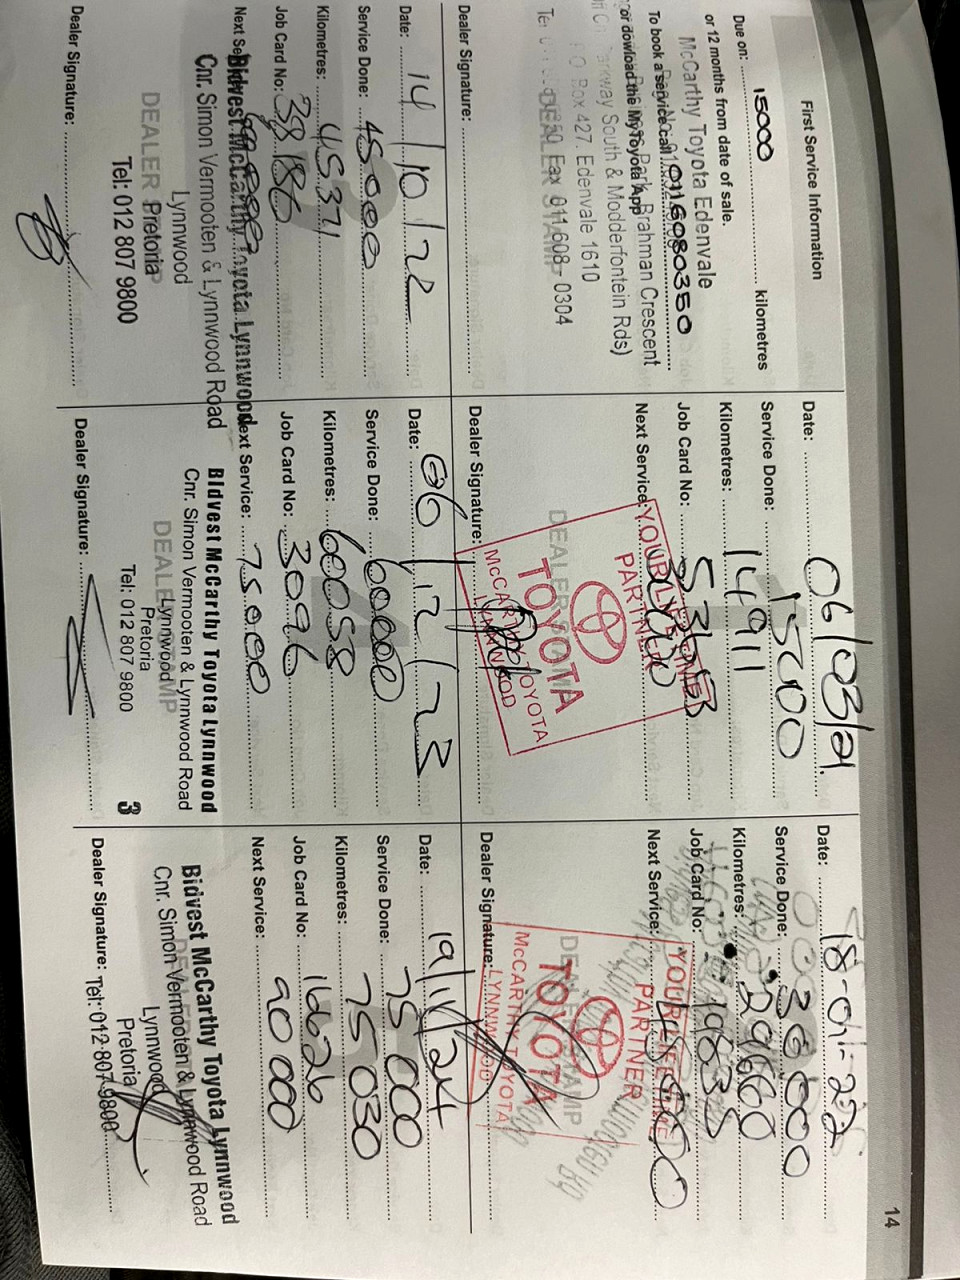 14
First Service Information
Due on: 15000 kilometres
or 12 months from date of sale.
McCarthy Toyota Edenvale
To book a service call 0116080350
Brahman Crescent
or dowload the MyToyota App
Parkway South & Modderfontein Rds)
P O Box 427, Edenvale 1610
Fax 011 608 - 0304
DEALER STAMP
Dealer Signature:
Date: 06/08/21.
Service Done: 15000
Kilometres: 14911
Job Card No:
Next Service:
YOUR LIFETIME
PARTNER
DEALER STAMP
TOYOTA
McCARTHY TOYOTA
LYNNWOOD
Dealer Signature:
Date: 18-01-22
Service Done: 30 000
Kilometres: 29660
Job Card No: 19835
Next Service:
YOUR LIFETIME
PARTNER
DEALER STAMP
TOYOTA
McCARTHY TOYOTA
LYNNWOOD
Dealer Signature:
Date: 14/10/22
Service Done: 45000
Kilometres: 45371
Job Card No: 38186
Next Service:
Bidvest McCarthy Toyota Lynnwood
Cnr. Simon Vermooten & Lynnwood Road
Lynnwood
DEALER STAMP
Pretoria
Tel: 012 807 9800
Dealer Signature:
Date: 06/12/23
Service Done: 60000
Kilometres: 60058
Job Card No: 3096
Next Service: 75000
Bidvest McCarthy Toyota Lynnwood
Cnr. Simon Vermooten & Lynnwood Road
DEALER STAMP
Lynnwood
Pretoria
Tel: 012 807 9800
3
Dealer Signature:
Date: 19/11/24
Service Done: 75 000
Kilometres: 75 030
Job Card No: 16626
Next Service: 90 000
Bidvest McCarthy Toyota Lynnwood
Cnr. Simon Vermooten & Lynnwood Road
Lynnwood
Pretoria
Tel: 012 807 9800
Dealer Signature: